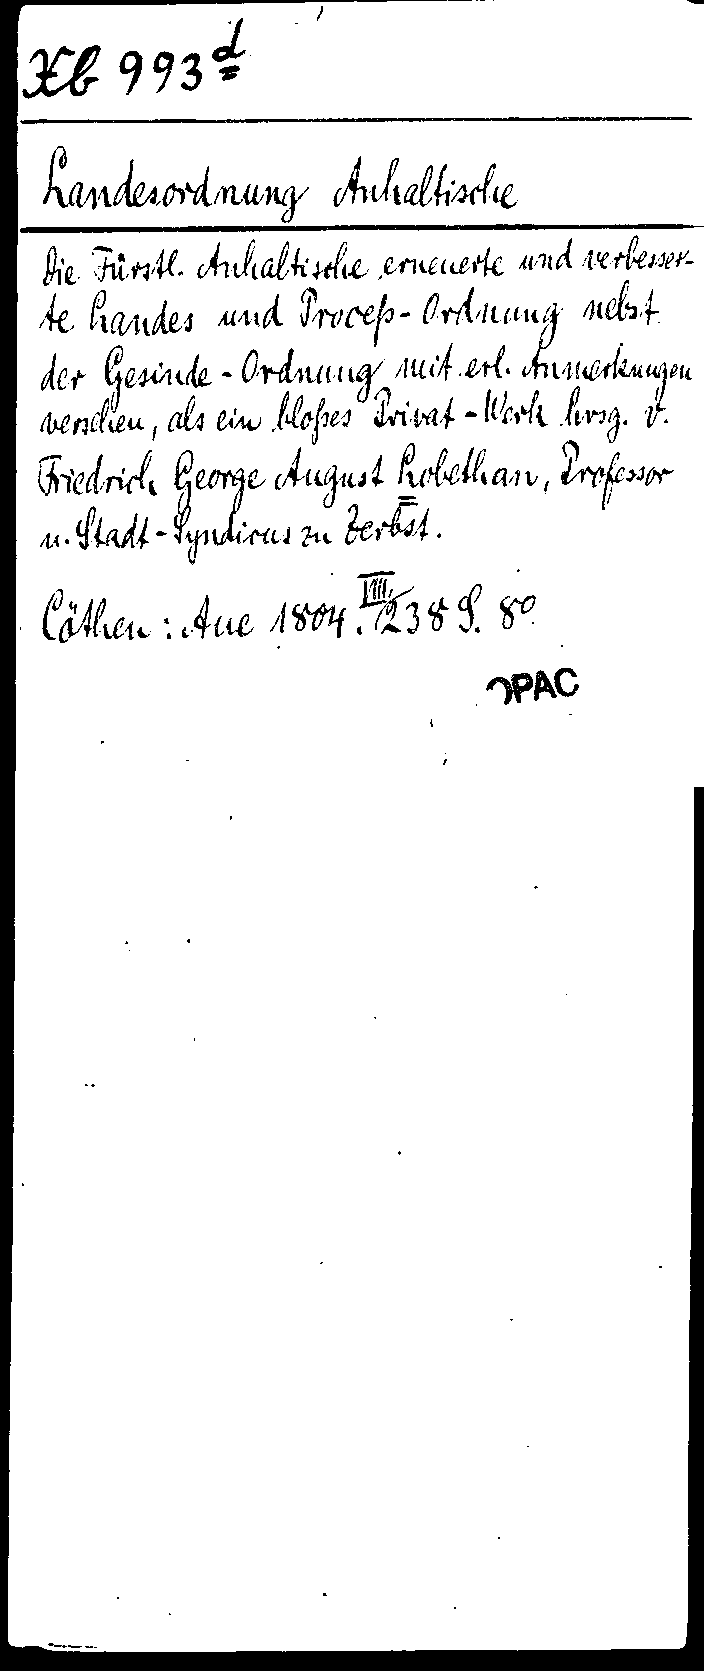 Xb 993 d
Landesordnung Anhaltische
Die Fürstl. Anhaltische erneuerte und verbesser-
te Landes und Proceß-Ordnung nebst
der Gesinde-Ordnung mit erl. Anmerkungen
versehen, als ein bloßes Privat-Werk hrsg. v.
Friedrich George August Lobethan, Professor
u. Stadt-Syndicus zu Zerbst.
Cöthen: Aue 1804. VIII, 238 S. 8°
OPAC